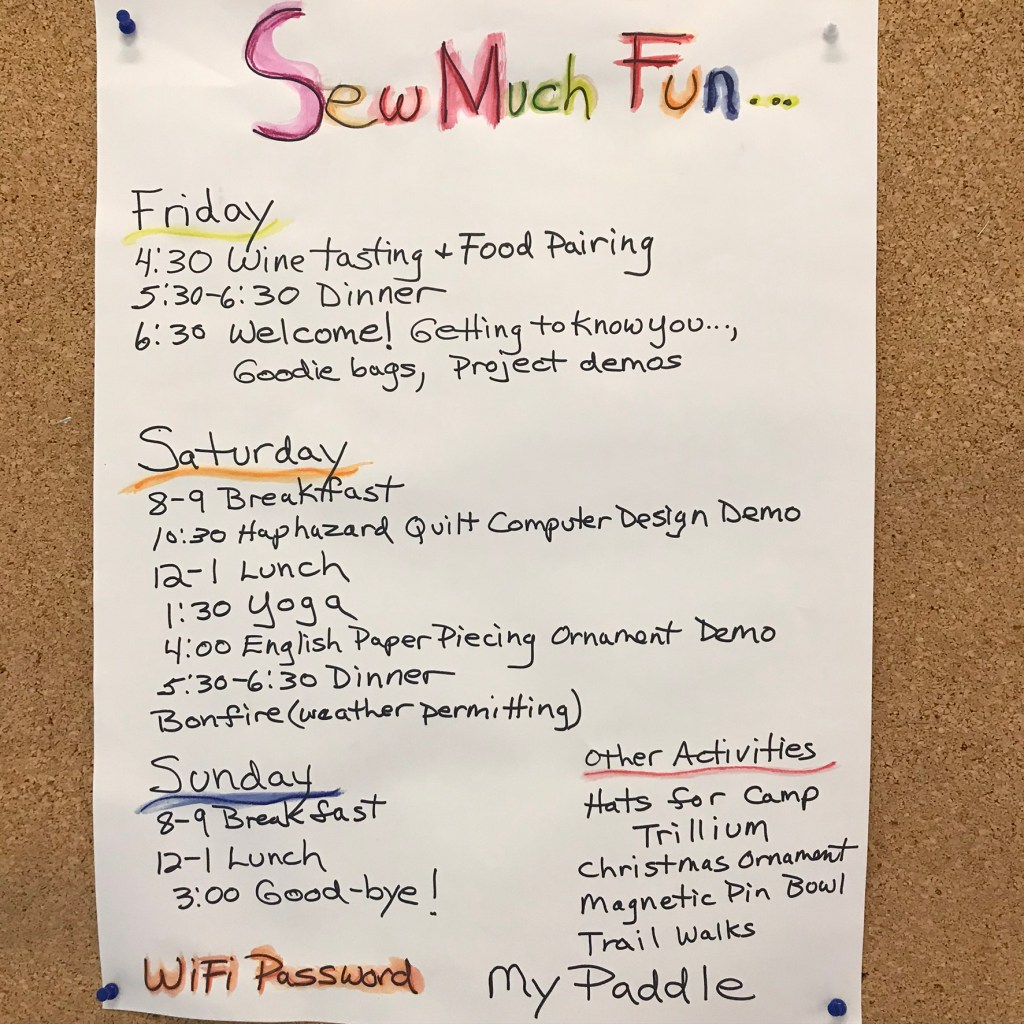 Sew Much Fun...
Friday
4:30 Wine tasting + Food Pairing
5:30-6:30 Dinner
6:30 Welcome! Getting to know you...,
Goodie bags, Project demos
Saturday
8-9 Breakfast
10:30 Haphazard Quilt Computer Design Demo
12-1 Lunch
1:30 Yoga
4:00 English Paper Piecing Ornament Demo
5:30-6:30 Dinner
Bonfire (weather permitting)
Sunday
8-9 Breakfast
12-1 Lunch
3:00 Good-bye!
Other Activities
Hats for Camp
Trillium
Christmas Ornament
Magnetic Pin Bowl
Trail Walks
WiFi Password My Paddle